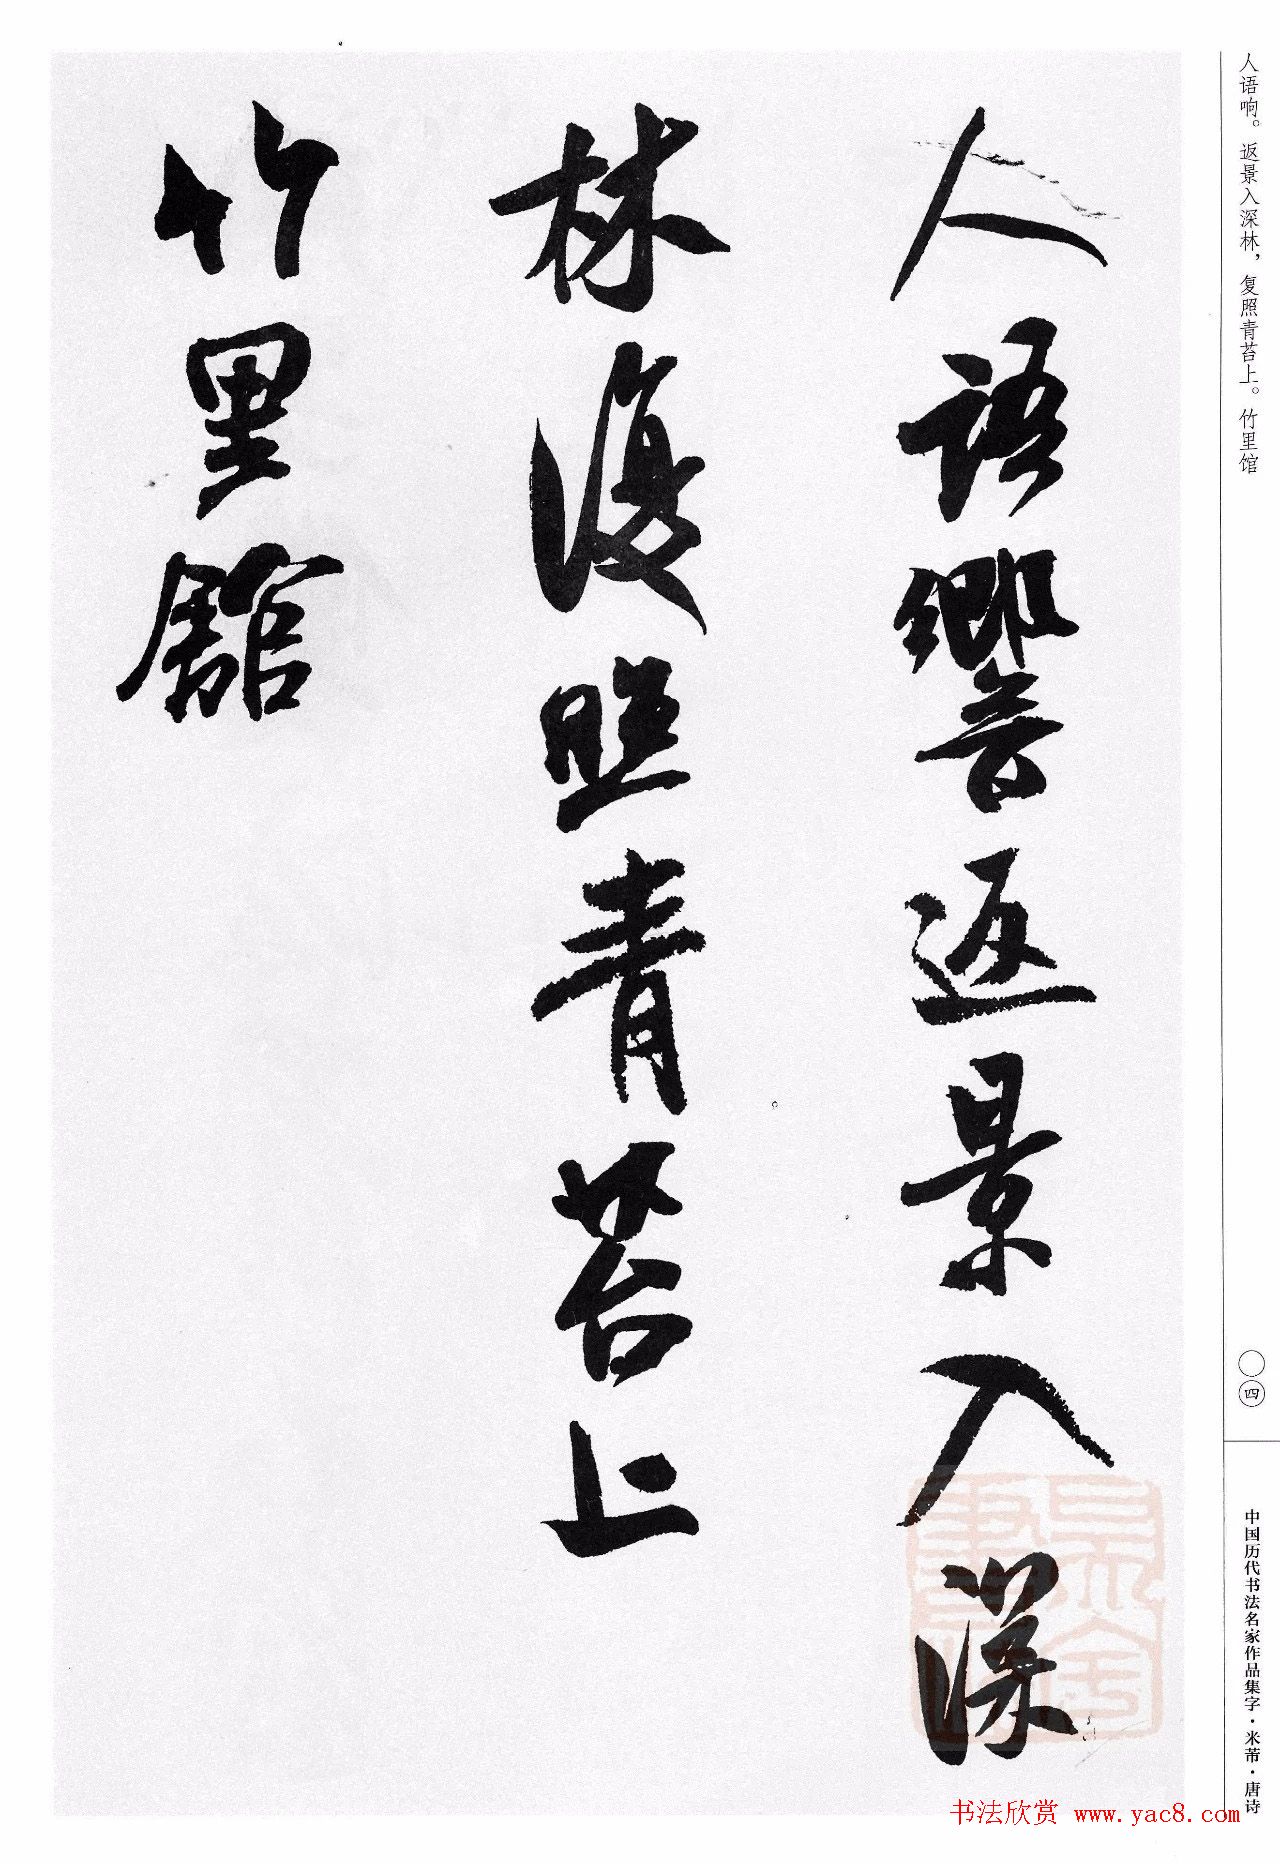 人語響返景入深
林復照青苔上
竹里館
人语响。返景入深林，复照青苔上。竹里馆
〇四
中国历代书法名家作品集字·米芾·唐诗
书法欣赏 www.yac8.com